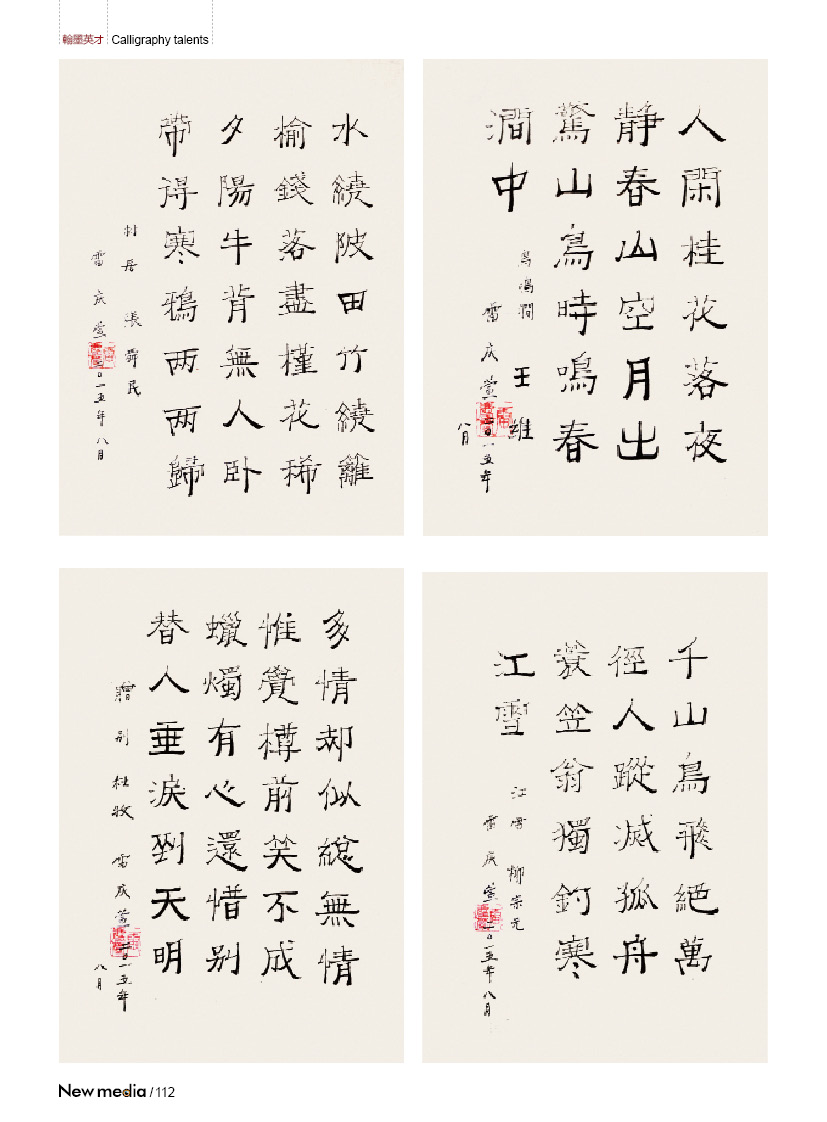 翰墨英才 Calligraphy talents
水繞陂田竹繞離
榆錢落盡槿花稀
夕陽牛背無人卧
帶得寒鴉两两歸
村居 張舜民
雷庆萱 二〇一五年八月
人閑桂花落夜
静春山空月出
驚山鳥時鳴春
澗中
鳥鳴澗 王維
雷庆萱 二〇一五年
八月
多情却似總無情
惟覺樽前笑不成
蠟燭有心還惜别
替人垂淚到天明
贈别 杜牧 雷庆萱 二〇一五年
八月
千山鳥飛絕萬
徑人蹤滅孤舟
蓑笠翁獨釣寒
江雪
江雪 柳宗元
雷庆萱 二〇一五年八月
New media / 112